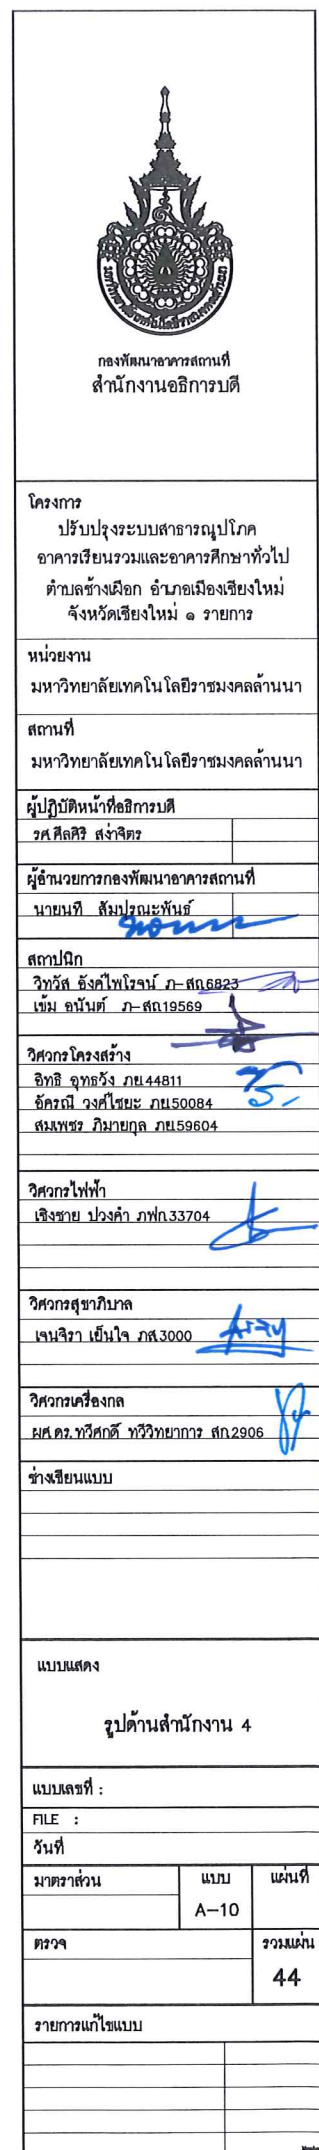 มหาวิทยาลัยเทคโนโลยีราชมงคลล้านนา
กองพัฒนาอาคารสถานที่
สำนักงานอธิการบดี
โครงการ
ปรับปรุงระบบสาธารณูปโภค
อาคารเรียนรวมและอาคารศึกษาทั่วไป
ตำบลช้างเผือก อำเภอเมืองเชียงใหม่
จังหวัดเชียงใหม่ ๑ รายการ
หน่วยงาน
มหาวิทยาลัยเทคโนโลยีราชมงคลล้านนา
สถานที่
มหาวิทยาลัยเทคโนโลยีราชมงคลล้านนา
ผู้ปฏิบัติหน้าที่อธิการบดี
รศ.ศีลศิริ สง่าจิตร
ผู้อำนวยการกองพัฒนาอาคารสถานที่
นายนที สัมปุรณะพันธ์
สถาปนิก
วิทวัส อิงค์ไพโรจน์ ภ-สถ.6823
เข้ม อนันต์ ภ-สถ.19569
วิศวกรโครงสร้าง
อิทธิ อุทธวัง ภย.44811
อัครณี วงศ์ไชยะ ภย.50084
สมเพชร ภิมายกุล ภย.59604
วิศวกรไฟฟ้า
เชิงชาย ปวงคำ ภฟก.33704
วิศวกรสุขาภิบาล
เจนจิรา เย็นใจ ภส.3000
วิศวกรเครื่องกล
ผศ.ดร.ทวีศักดิ์ ทวีวิทยาการ สก.2906
ช่างเขียนแบบ
แบบแสดง
รูปด้านสำนักงาน 4
แบบเลขที่ :
FILE :
วันที่
มาตราส่วน แบบ แผ่นที่
A-10
ตรวจ รวมแผ่น
44
รายการแก้ไขแบบ